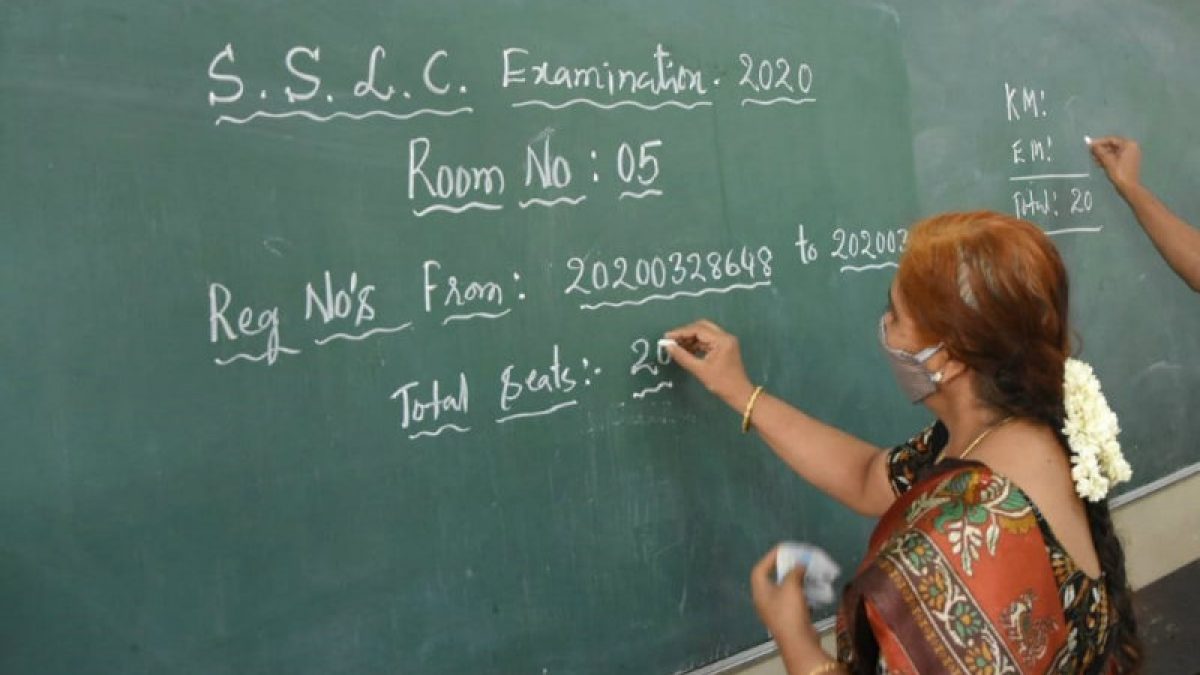 S.S.L.C. Examination. 2020
Room No : 05
Reg No's From : 20200328648 to 202003
Total Seats:- 20
KM:
EM:
Total: 20